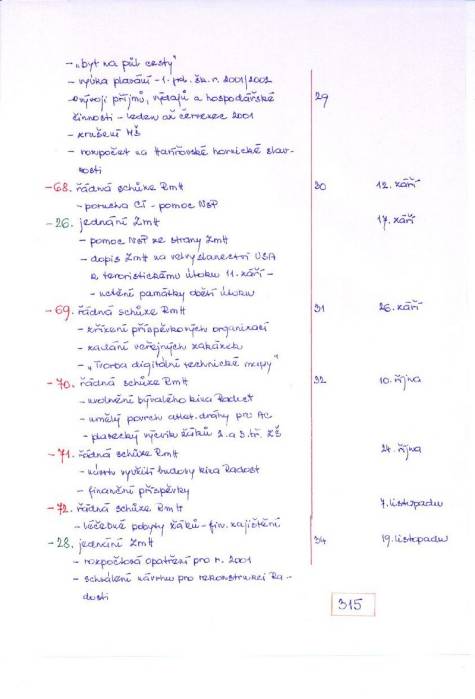 - „byt na půl cesty"
- výuka plavání - 1. pol. šk. r. 2001/2002
- o vývoji příjmů, výdajů a hospodářské 29
činnosti - leden až červenec 2001
- zrušení MŠ
- rozpočet na Havířovské hornické slav-
nosti
- 68. řádná schůze RmH 30 12. září
- porucha CT - pomoc NsP
- 26. jednání ZmH 17. září
- pomoc NsP ze strany ZmH
- dopis ZmH na velvyslanectví USA
k teroristickému útoku 11. září -
- uctění památky obětí útoku
- 69. řádná schůze RmH 31 26. září
- zřízení příspěvkových organizací
- zadání veřejných zakázek
- „Tvorba digitální technické mapy"
- 70. řádná schůze RmH 32 10. října
- uvolnění bývalého kina Radost
- umělý povrch atlet. dráhy pro AC
- plavecký výcvik žáků 2. a 3. tř. ZŠ
- 71. řádná schůze RmH 24. října
- návrh využití budovy kina Radost
- finanční příspěvky
- 72. řádná schůze RmH 7. listopadu
- léčebné pobyty žáků - fin. zajištění
- 28. jednání ZmH 34 19. listopadu
- rozpočtová opatření pro r. 2001
- schválení návrhu pro rekonstrukci Ra-
dosti
315